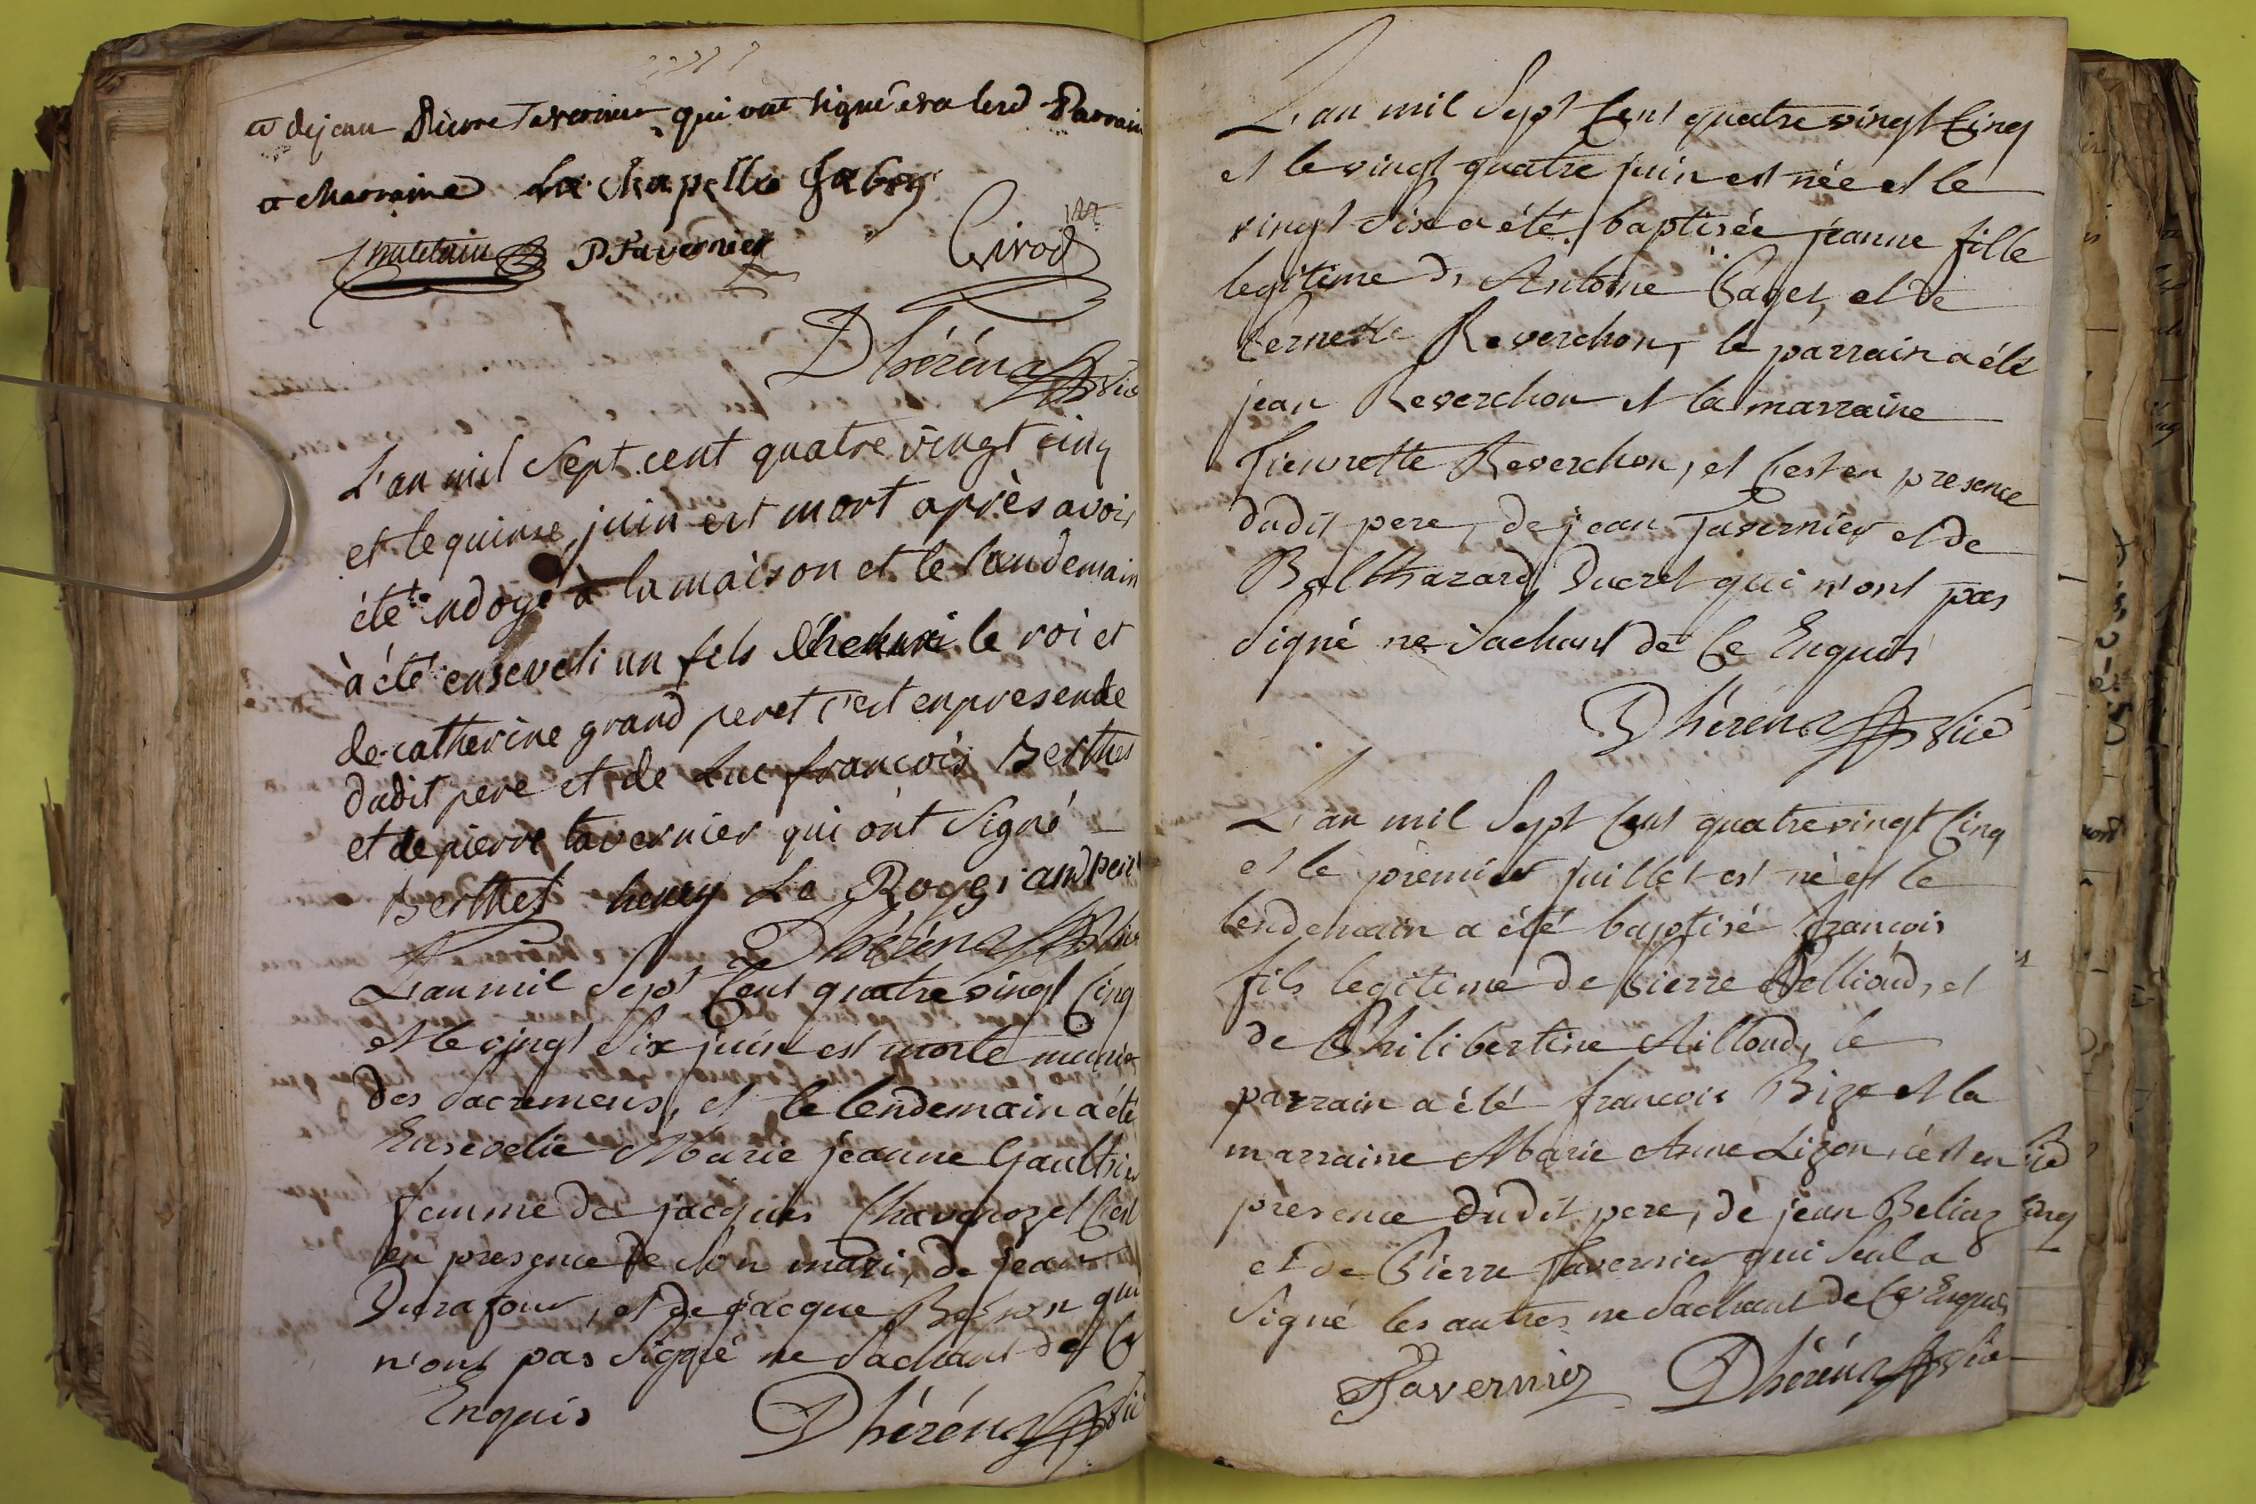 et dejean Pierre Tavernier qui ont signé Parrain
et Marraine La Chapelle Fabry
P Tavernier Girod
Dhéréna vic
L'an mil sept cent quatre vingt cinq
et le quinse juin est mort après avoir
été ondoyé à la maison et le landemain
à été enseveli un fils Dhenri le roi et
de catherine grand peret c'est enpresende
dudit pere et de Luc francois Berthet
et de pierre tavernier qui ont signé
Berthet henry Le Roy
Dhéréna vic
L'an mil sept Cent quatre vingt Cinq
et le vingt Six juin est morte munie
des sacremens, et le lendemain a été
Ensevelie Marie jeanne Gaulthier
femme de jacques C'est
en presence de son mari, de jean
Durafour, et de jacque qui
n'ont pas signé ne sachant de Ce
Enquis Dhéréna vic
L'an mil Sept Cent quatre vingt Cinq
et le vingt quatre juin est née et le
vingt Six a été baptisée jeanne fille
legitime d'Antoine Paget, et de
Pernette Reverchon, le parrain a été
jean Reverchon et la marraine
Fieurette Reverchon, et C'est en presence
dudit pere, de jean Tavernier et de
Balthazard Ducret qui n'ont pas
Signé ne Sachant de Ce Enquis
Dhéréna vic
L'an mil Sept Cent quatre vingt Cinq
et le premier juillet est né et le
lendemain a été baptisé françois
fils legitime de Pierre Pelliaud, et
de Philibertine Ailloud, le
parrain a été francois Bize et la
marraine Marie Anne Lizon, c'est en
presence dudit pere, de jean Beliaz
et de Pierre Tavernier qui Seul a
Signé les autres ne Sachant de Ce Enquis
PTavernier Dhéréna vic